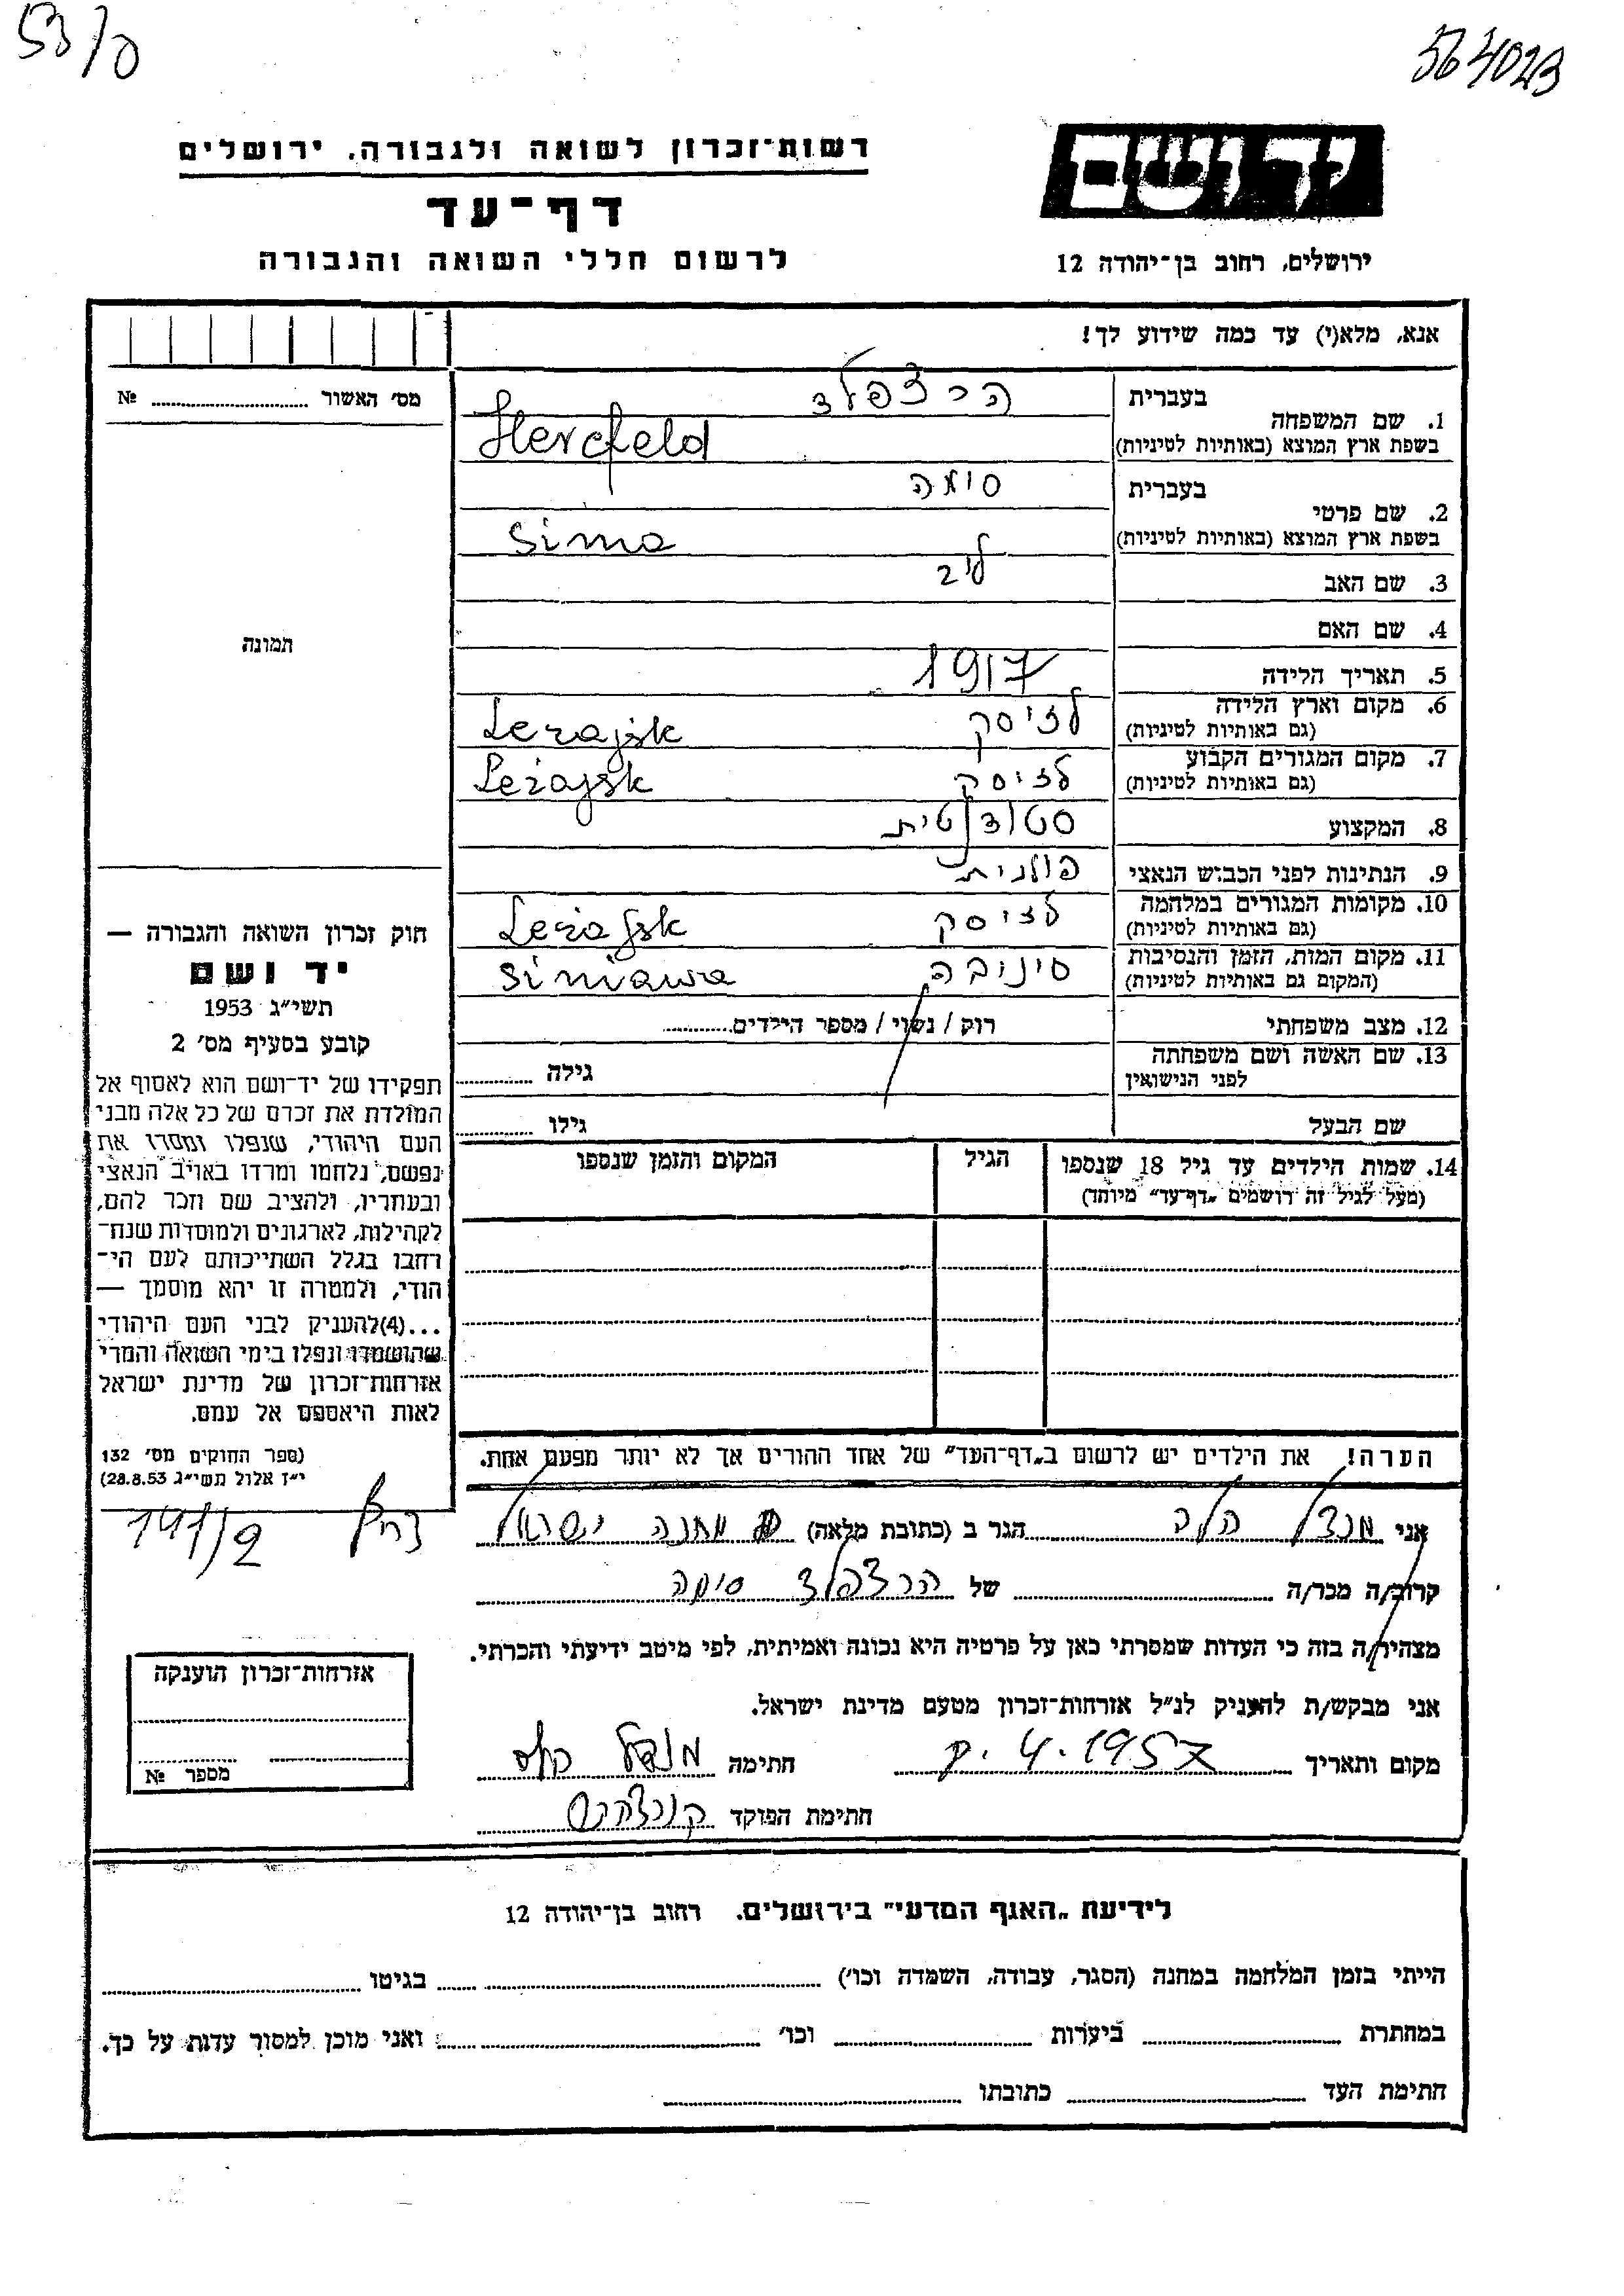 53/0
564023
ידושם
רשות־זכרון לשואה ולגבורה, ירושלים
דף־עד
לרשום חללי השואה והגבורה
ירושלים, רחוב בן־יהודה 12
אנא, מלא(י) עד כמה שידוע לך!
מס׳ האשור № ....................
1. שם המשפחה
בעברית הרצפלד
בשפת ארץ המוצא (באותיות לטיניות) Hercfeld
2. שם פרטי
בעברית סימה
בשפת ארץ המוצא (באותיות לטיניות) Sima
3. שם האב לייב
4. שם האם
5. תאריך הלידה 1917
6. מקום וארץ הלידה לזיסק Lezajsk
(גם באותיות לטיניות)
7. מקום המגורים הקבוע לזיסק Leżajsk
(גם באותיות לטיניות)
8. המקצוע סטודנטית
9. הנתינות לפני הכבוש הנאצי פולנית
10. מקומות המגורים במלחמה לזיסק Leżajsk
(גם באותיות לטיניות)
11. מקום המות, הזמן והנסיבות סיניבה Siniawa
(המקום גם באותיות לטיניות)
12. מצב משפחתי רוק / נשוי / מספר הילדים..........
13. שם האשה ושם משפחתה גילה ..........
לפני הנישואין
שם הבעל גילו ..........
14. שמות הילדים עד גיל 18 שנספו הגיל המקום והזמן שנספו
(מעל לגיל זה רושמים „דף־עד” מיוחד)
תמונה
חוק זכרון השואה והגבורה —
יד ושם
תשי״ג 1953
קובע בסעיף מס׳ 2
תפקידו של יד־ושם הוא לאסוף אל
המולדת את זכרם של כל אלה מבני
העם היהודי, שנפלו ומסרו את
נפשם, נלחמו ומרדו באויב הנאצי
ובעוזריו, ולהציב שם וזכר להם,
לקהילות, לארגונים ולמוסדות שנח־
רחבו בגלל השתייכותם לעם הי־
הודי, ולמטרה זו יהא מוסמך —
...(4)להעניק לבני העם היהודי
שהושמדו ונפלו בימי השואה והמרי
אזרחות־זכרון של מדינת ישראל
לאות היאספם אל עמם.
(ספר החוקים מס׳ 132
י״ז אלול תשי״ג 28.8.53)
141/2
הערה! את הילדים יש לרשום ב„דף־העד” של אחד ההורים אך לא יותר מפעם אחת.
אני מנדל הלה הגר ב (כתובת מלאה) מחנה ישראל
קרוב/ה מכר/ה .................... של הרצפלד סימה
מצהיר/ה בזה כי העדות שמסרתי כאן על פרטיה היא נכונה ואמיתית, לפי מיטב ידיעתי והכרתי.
אני מבקש/ת להעניק לנ״ל אזרחות־זכרון מטעם מדינת ישראל.
מקום ותאריך 4.1957 חתימה מנדל
חתימת הפוקד
אזרחות־זכרון הוענקה
מספר №
לידיעת „האגף המדעי” בירושלים. רחוב בן־יהודה 12
הייתי בזמן המלחמה במחנה (הסגר, עבודה, השמדה וכו׳) .................... בגיטו ....................
במחתרת .................... ביערות .................... וכו׳ .................... ואני מוכן למסור עדות על כך.
חתימת העד .................... כתובתו ....................